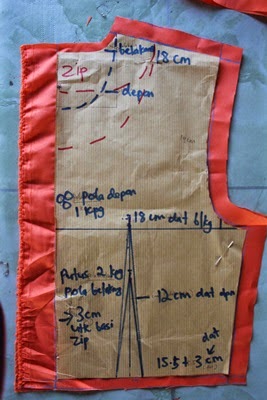 belakang
18 cm
Zip
depan
pola depan
1 kpg
18 cm dat blkg
Putus 2 kpg
pola belakang
→ 3cm
utk basi
Zip
12 cm dat dpn
dat
15.5 + 3 cm